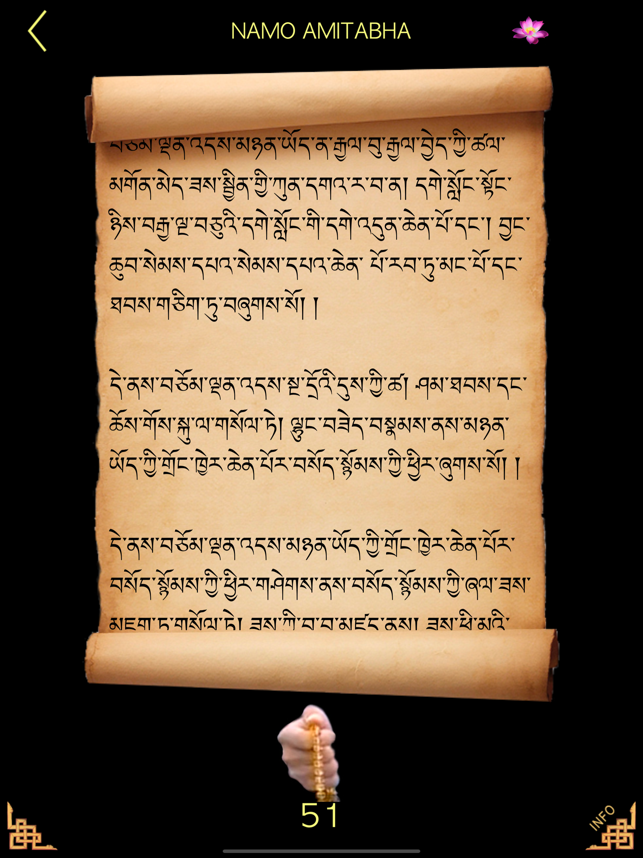 NAMO AMITABHA
བཅོམ་ལྡན་འདས་མཉན་ཡོད་ན་རྒྱལ་བུ་རྒྱལ་བྱེད་ཀྱི་ཚལ་
མགོན་མེད་ཟས་སྦྱིན་གྱི་ཀུན་དགའ་ར་བ་ན། དགེ་སློང་སྟོང་
ཉིས་བརྒྱ་ལྔ་བཅུའི་དགེ་སློང་གི་དགེ་འདུན་ཆེན་པོ་དང་། བྱང་
ཆུབ་སེམས་དཔའ་སེམས་དཔའ་ཆེན་ པོ་རབ་ཏུ་མང་པོ་དང་
ཐབས་གཅིག་ཏུ་བཞུགས་སོ། །
དེ་ནས་བཅོམ་ལྡན་འདས་སྔ་དྲོའི་དུས་ཀྱི་ཚ། ཤམ་ཐབས་དང་
ཆོས་གོས་སྐུ་ལ་གསོལ་ཏེ། ལྷུང་བཟེད་བསྣམས་ནས་མཉན་
ཡོད་ཀྱི་གྲོང་ཁྱེར་ཆེན་པོར་བསོད་སྙོམས་ཀྱི་ཕྱིར་ཞུགས་སོ། །
དེ་ནས་བཅོམ་ལྡན་འདས་མཉན་ཡོད་ཀྱི་གྲོང་ཁྱེར་ཆེན་པོར་
བསོད་སྙོམས་ཀྱི་ཕྱིར་གཤེགས་ནས་བསོད་སྙོམས་ཀྱི་ཞལ་ཟས་
མཇུག་ཏུ་གསོལ་ཏེ། ཟས་ཀྱི་བྱ་བ་མཛད་ནས། ཟས་ཕྱི་མའི་
51
INFO